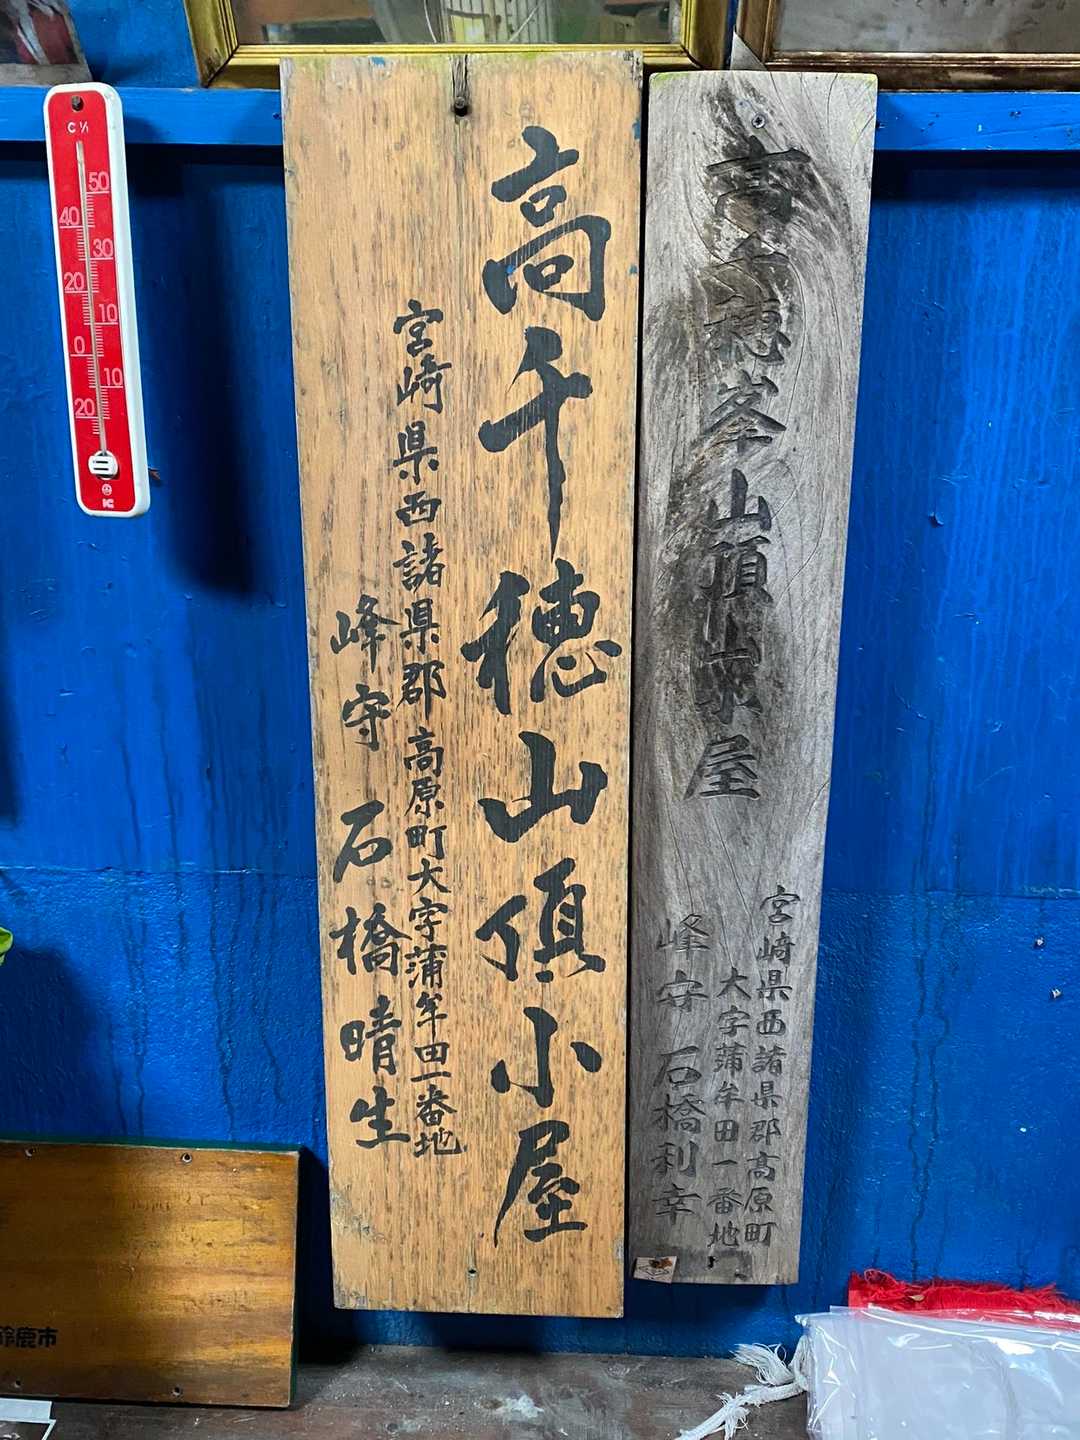 高千穂山頂小屋
宮崎県西諸県郡高原町大字蒲牟田一番地
峰守 石橋晴生
高千穂峯山頂小屋
宮崎県西諸県郡高原町
大字蒲牟田一番地
峰守 石橋利幸
C
50
40
30
20
10
0
10
20
鈴鹿市